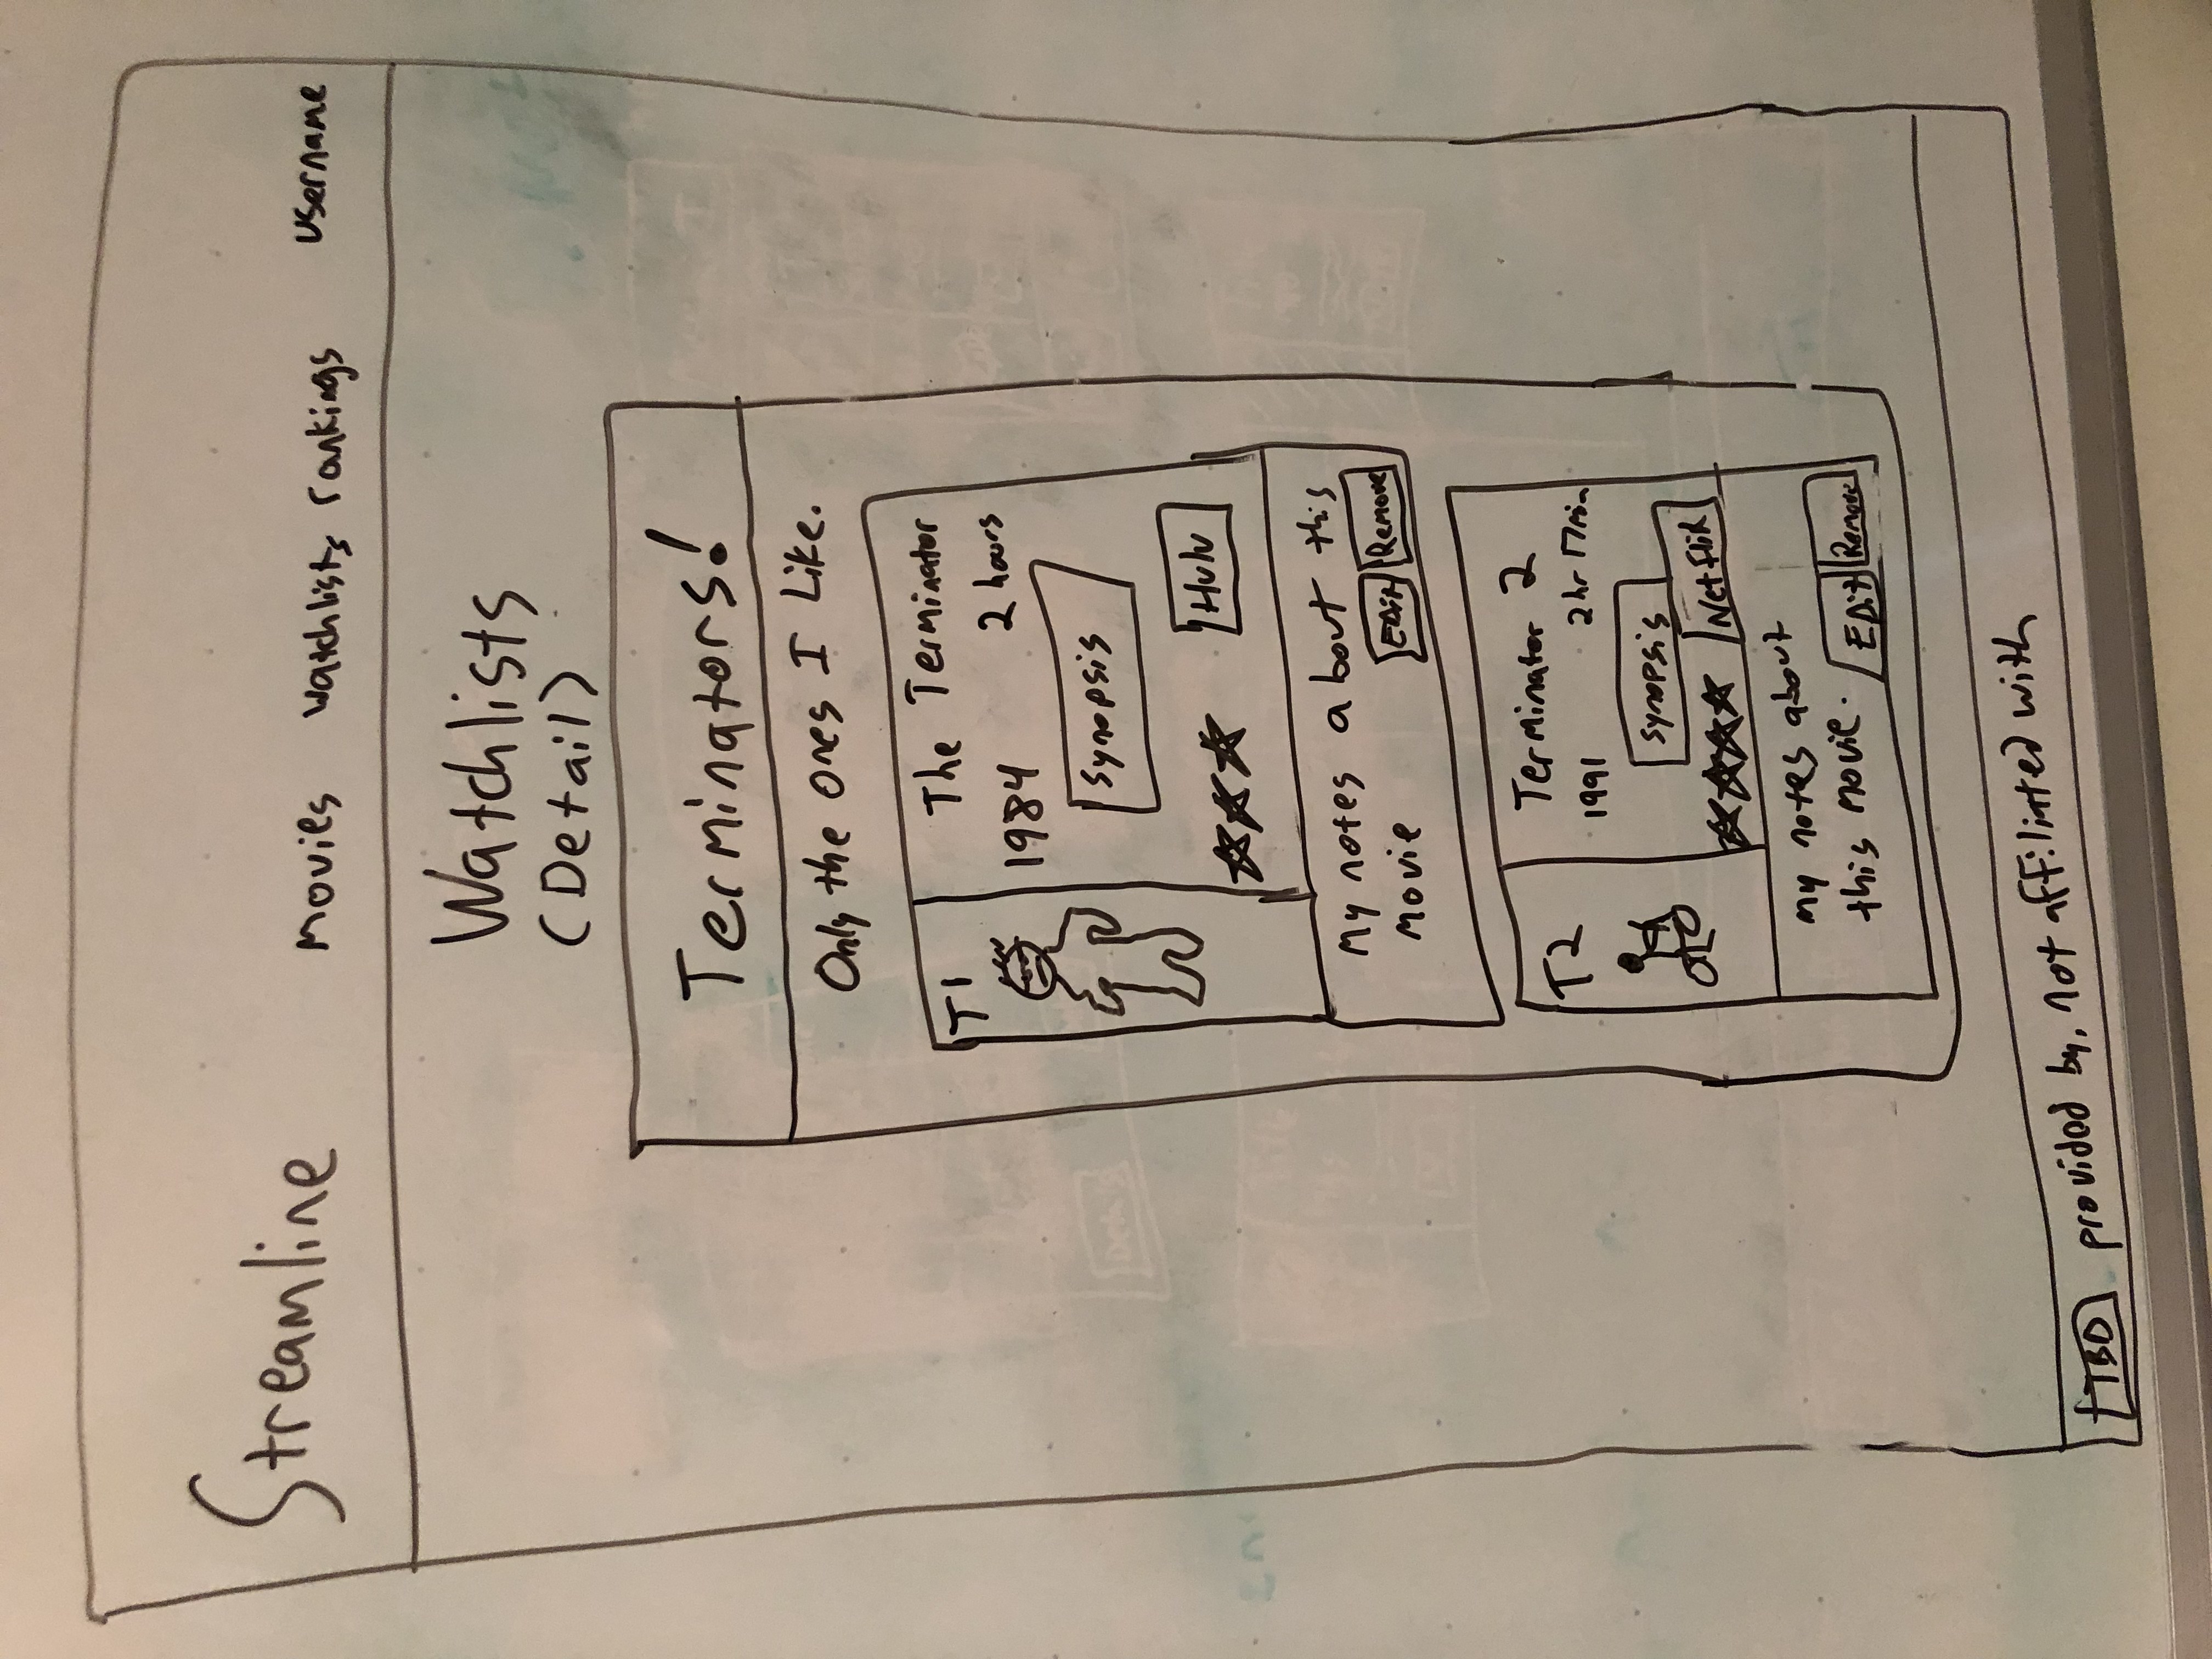 Streamline
Movies watchlists rankings username
Watchlists
(Detail)
Terminators!
Only the ones I Like.
T1
The Terminator
1984 2 hours
Synopsis
Hulu
My notes about this
Movie
Edit Remove
T2
Terminator 2
1991 2 hr 17min
Synopsis
Netflix
My notes about
this movie.
Edit Remove
TBD provided by, not affiliated with